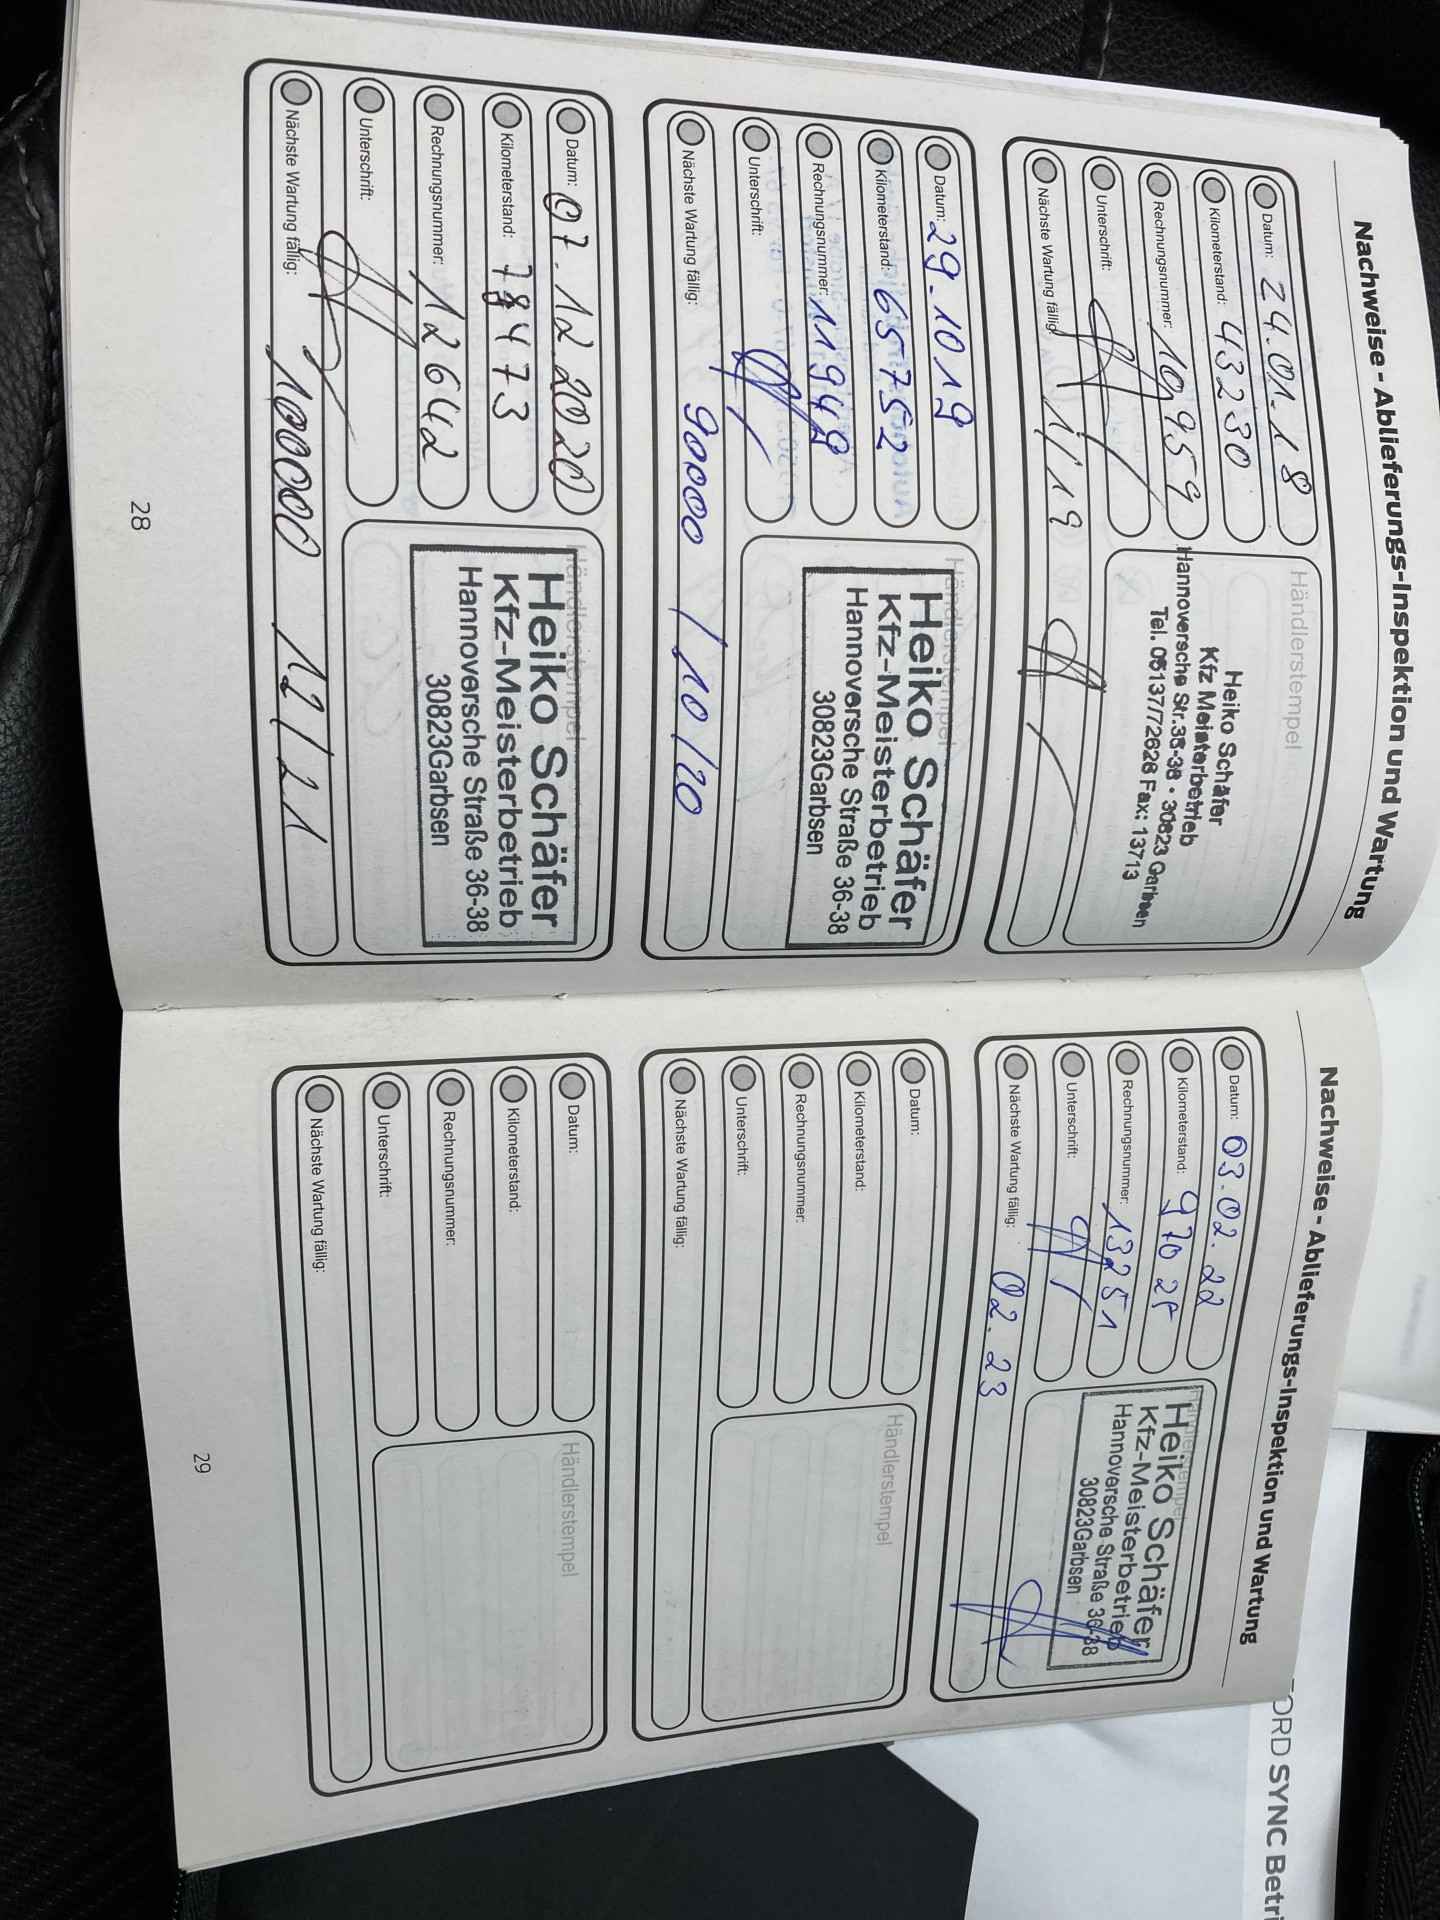 Nachweise - Ablieferungs-Inspektion und Wartung
Datum: 24.01.18
Kilometerstand: 43230
Rechnungsnummer: 10959
Unterschrift:
Nächste Wartung fällig: 1/19
Händlerstempel
Heiko Schäfer
Kfz Meisterbetrieb
Hannoversche Str.36-38 • 30823 Garbsen
Tel. 05137/72626 Fax: 13713
Datum: 29.10.19
Kilometerstand: 65752
Rechnungsnummer: 11949
Unterschrift:
Nächste Wartung fällig: 90000 / 10/20
Händlerstempel
Heiko Schäfer
Kfz-Meisterbetrieb
Hannoversche Straße 36-38
30823Garbsen
Datum: 07.12.2020
Kilometerstand: 78473
Rechnungsnummer: 12642
Unterschrift:
Nächste Wartung fällig: 100000 12/21
Händlerstempel
Heiko Schäfer
Kfz-Meisterbetrieb
Hannoversche Straße 36-38
30823Garbsen
28
Nachweise - Ablieferungs-Inspektion und Wartung
Datum: 03.02.22
Kilometerstand:
Rechnungsnummer: 13251
Unterschrift:
Nächste Wartung fällig: 02.23
Händlerstempel
Heiko Schäfer
Kfz-Meisterbetrieb
Hannoversche Straße 36-38
30823Garbsen
Datum:
Kilometerstand:
Rechnungsnummer:
Unterschrift:
Nächste Wartung fällig:
Händlerstempel
Datum:
Kilometerstand:
Rechnungsnummer:
Unterschrift:
Nächste Wartung fällig:
Händlerstempel
29
FORD SYNC Betri